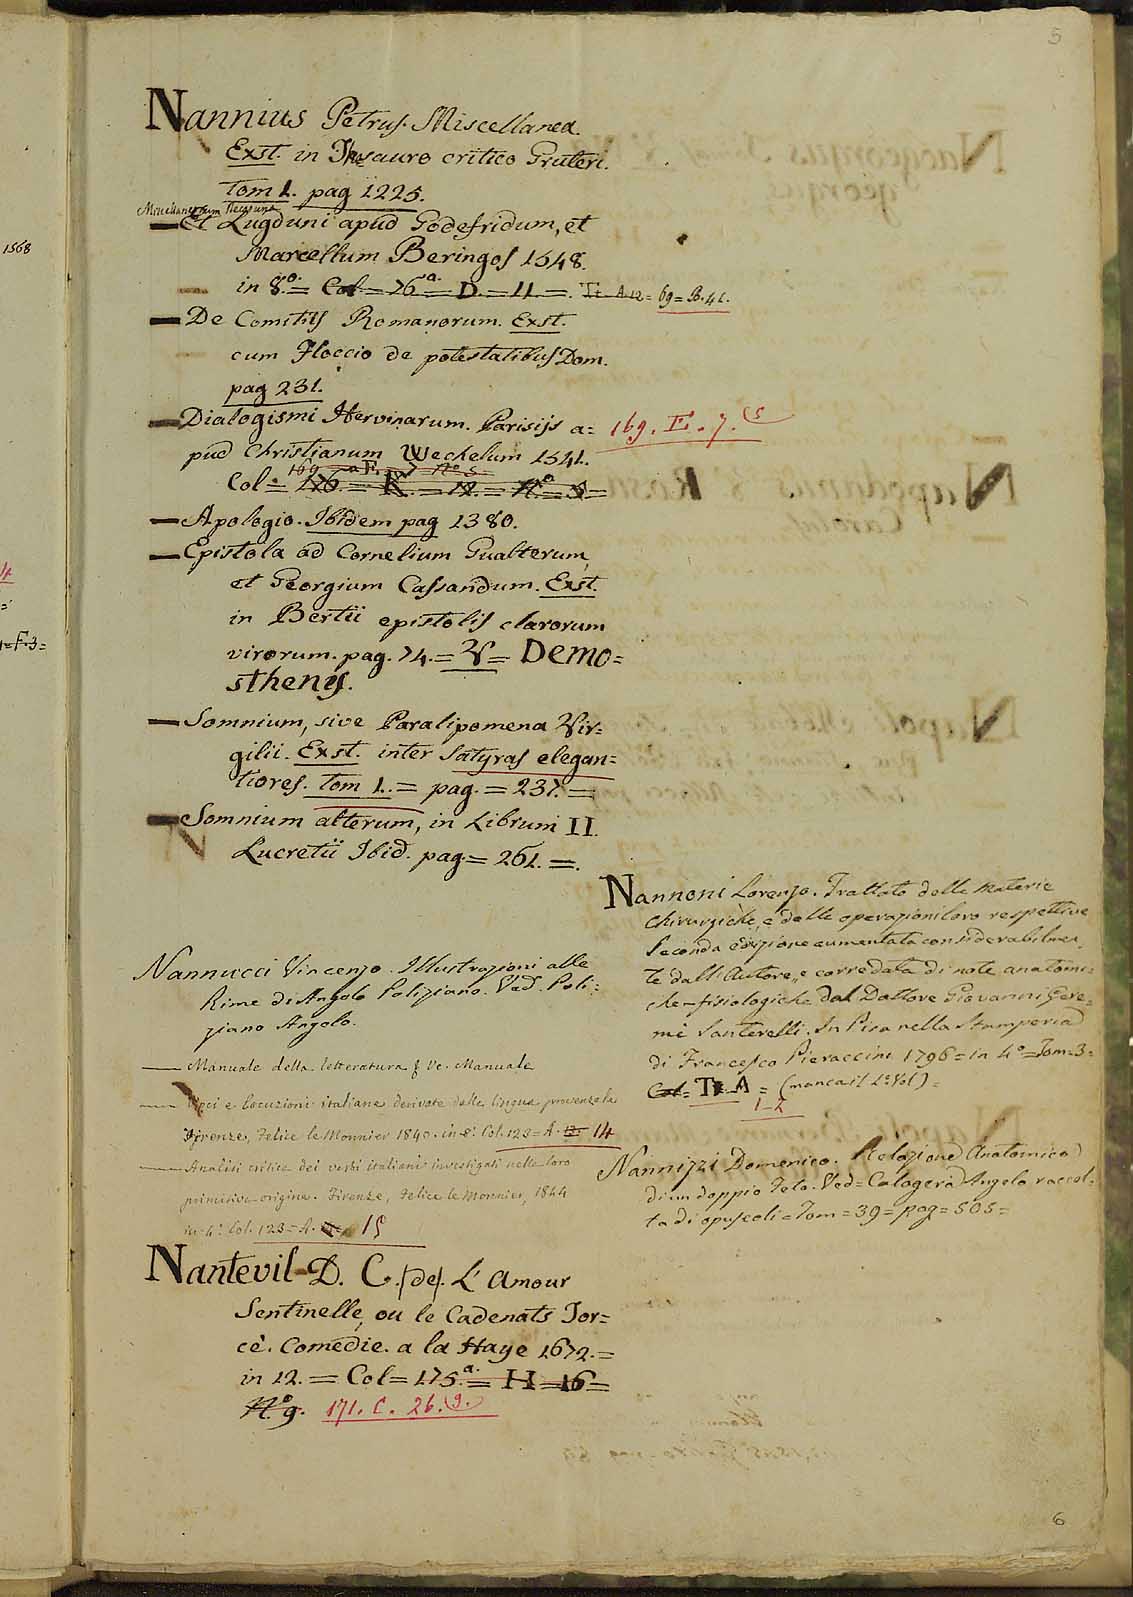 5
Nannius Petrus. Miscellanea.
Exst. in Thesauro critico Gruteri.
Tom 1. pag 1225.
Miscellaneorum Decas una
Et Lugduni apud Godefridum, et
Marcellum Beringos 1548.
in 8.º = Col = 76.ª = D. = 11 = . Tt A 12 = 69 = B. 41.
De Comitiis Romanorum. Exst.
cum Floccio de potestatibus Dom.
pag 231.
Dialogismi Heroinarum. Parisiis a= 169. E. 7. (5
pud Christianum Wechelum 1541.
169 = E. 7 Nº 5
Col = 176 = K. = 12. = N.º 5 =
Apologio. Ibidem pag 1380.
Epistola ad Cornelium Gualterum,
et Georgium Cassandum. Exst.
in Bertii epistolis clarorum
virorum. pag. 74. = V = Demo=
sthenes.
Somnium, sive Paralipomena Vir=
gilii. Exst. inter Satyras elegan=
tiores. tom 1. = pag. = 237. =
Somnium alterum, in Librum II.
Lucretii Ibid. pag = 261. = .
Nannucci Vincenzo. Illustrazioni alle
Rime di Angelo Poliziano. Ved. Poli=
ziano Angelo.
Manuale della letteratura & Ve. Manuale
Voci e locuzioni italiane derivate dalla lingua provenzale
Firenze, Felice le Monnier 1840. in 8º Col. 123 = A. 13. 14
Analisi critica dei verbi italiani investigati nella loro
primitiva origine. Firenze, Felice le Monnier, 1844
in 4º Col. 123 = A. 15
Nantevil D. C. (de). L' Amour
Sentinelle, ou le Cadenats For=
cè. Comedie. a la Haye 1672. =
in 12. = Col = 175.ª = H = 16 =
N.º 9. 171. C. 26. (9.
Nannoni Lorenzo. Trattato delle Materie
Chirurgiche, e delle operazioni loro respettive
Seconda edizione aumentata considerabilmen.
te dall' Autore, e corredata di note anatomi=
che-fisiologiche dal Dottore Giovanni Gere=
mi Santerelli. In Pisa nella Stamperia
di Francesco Pieraccini 1796 = in 4º = Tom. 3 =
Col = T A = (manca il 2º Vol) =
1-2
Nannizzi Domenico. Relazione Anatomica
di un doppio Feto. Ved = Calogerà Angelo raccol=
ta di opuscoli = Tom = 39 = pag = 505 =
1568
4
= F. 3 =
6